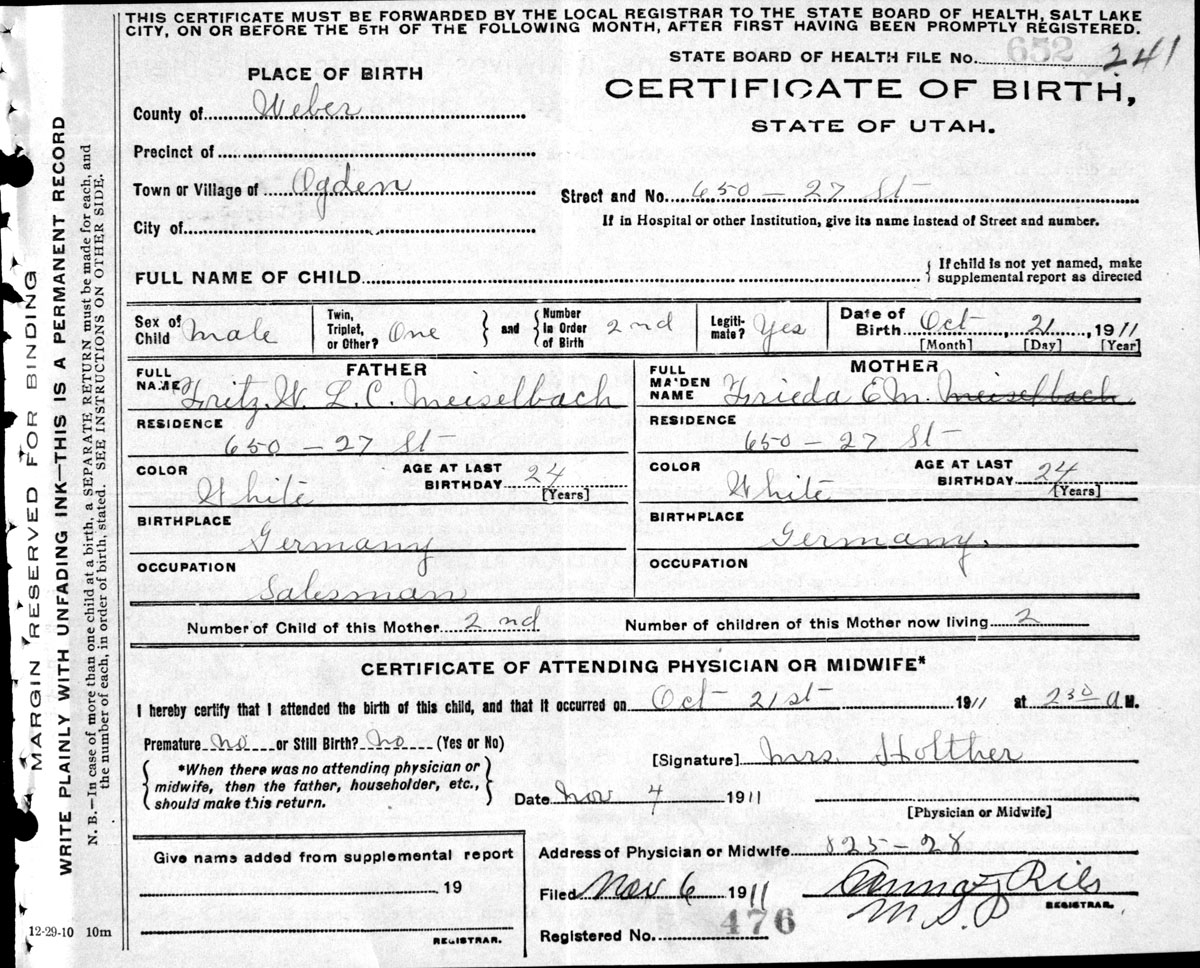 THIS CERTIFICATE MUST BE FORWARDED BY THE LOCAL REGISTRAR TO THE STATE BOARD OF HEALTH, SALT LAKE
CITY, ON OR BEFORE THE 5TH OF THE FOLLOWING MONTH, AFTER FIRST HAVING BEEN PROMPTLY REGISTERED.
STATE BOARD OF HEALTH FILE No. 652 241
PLACE OF BIRTH
CERTIFICATE OF BIRTH,
STATE OF UTAH.
County of Weber
Precinct of
Town or Village of Ogden
Street and No. 650 - 27 St
If in Hospital or other Institution, give its name instead of Street and number.
City of
FULL NAME OF CHILD
If child is not yet named, make
supplemental report as directed
Sex of Child Male
Twin, Triplet, or Other? One
and Number in Order of Birth 2nd
Legiti-mate? Yes
Date of Birth Oct, 21, 1911
[Month] [Day] [Year]
FATHER
FULL NAME Fritz W. L. C. Meiselbach
RESIDENCE
650 - 27 St
COLOR White
AGE AT LAST BIRTHDAY 24
[Years]
BIRTHPLACE
Germany
OCCUPATION
Salesman
MOTHER
FULL MAIDEN NAME Frieda E M. Meiselbach
RESIDENCE
650 - 27 St
COLOR White
AGE AT LAST BIRTHDAY 24
[Years]
BIRTHPLACE
Germany.
OCCUPATION
Number of Child of this Mother 2nd
Number of children of this Mother now living 2
CERTIFICATE OF ATTENDING PHYSICIAN OR MIDWIFE*
I hereby certify that I attended the birth of this child, and that it occurred on Oct 21st 1911 at 2 30 A M.
Premature no or Still Birth? No (Yes or No)
*When there was no attending physician or
midwife, then the father, householder, etc.,
should make this return.
[Signature] Mrs. Holther
Date Nov 4 1911
[Physician or Midwife]
Give name added from supplemental report
19
REGISTRAR.
12-29-10 10m
Address of Physician or Midwife 823 - 28
Filed Nov 6 1911
REGISTRAR.
Registered No. 476
MARGIN RESERVED FOR BINDING
WRITE PLAINLY WITH UNFADING INK—THIS IS A PERMANENT RECORD
N. B.—In case of more than one child at a birth, a SEPARATE RETURN must be made for each, and
the number of each, in order of birth, stated. SEE INSTRUCTIONS ON OTHER SIDE.